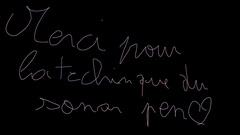 Merci pour
la technique du
sonar pen ♡